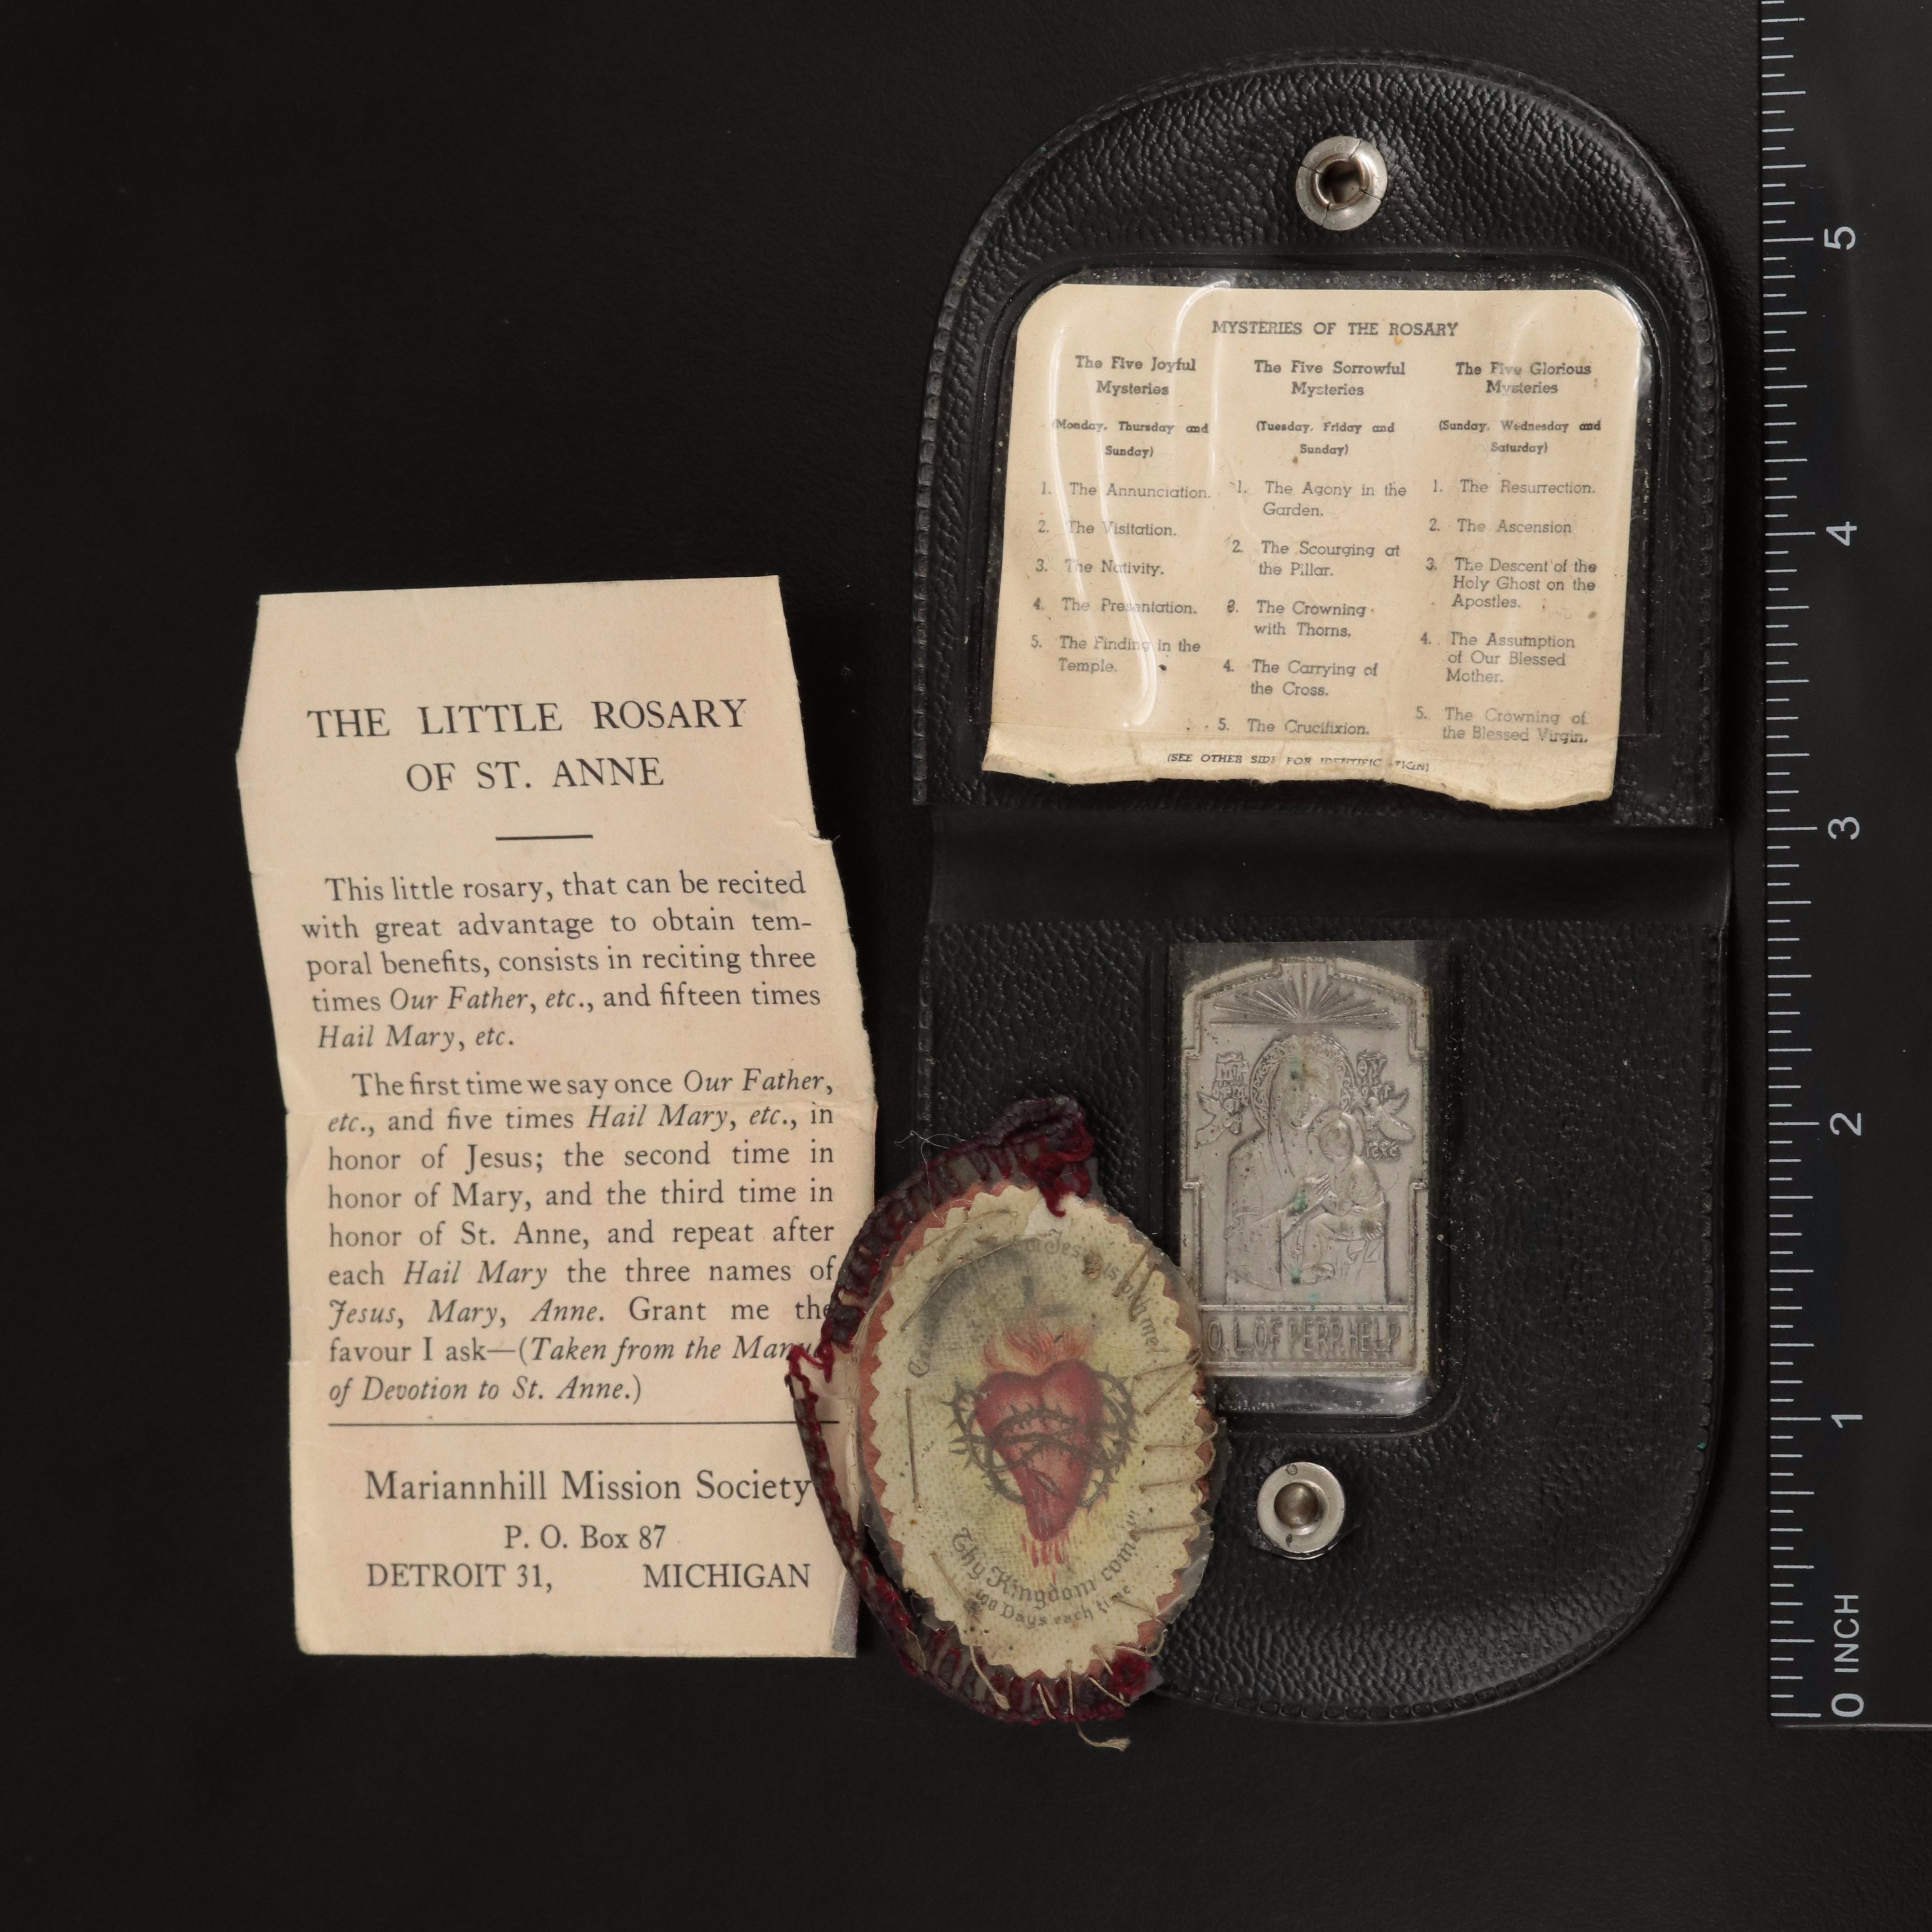 THE LITTLE ROSARY
OF ST. ANNE
This little rosary, that can be recited
with great advantage to obtain tem-
poral benefits, consists in reciting three
times Our Father, etc., and fifteen times
Hail Mary, etc.
The first time we say once Our Father,
etc., and five times Hail Mary, etc., in
honor of Jesus; the second time in
honor of Mary, and the third time in
honor of St. Anne, and repeat after
each Hail Mary the three names of
Jesus, Mary, Anne. Grant me the
favour I ask—(Taken from the
of Devotion to St. Anne.)
Mariannhill Mission Society
P. O. Box 87
DETROIT 31, MICHIGAN
MYSTERIES OF THE ROSARY
The Five Joyful
Mysteries
(Monday, Thursday and
Sunday)
1. The Annunciation.
2. The Visitation.
3. The Nativity.
4. The Presentation.
5. The Finding in the
Temple.
The Five Sorrowful
Mysteries
(Tuesday, Friday and
Sunday)
1. The Agony in the
Garden.
2. The Scourging at
the Pillar.
3. The Crowning
with Thorns.
4. The Carrying of
the Cross.
5. The Crucifixion.
The Five Glorious
Mysteries
(Sunday, Wednesday and
Saturday)
1. The Resurrection.
2. The Ascension
3. The Descent of the
Holy Ghost on the
Apostles.
4. The Assumption
of Our Blessed
Mother.
5. The Crowning of
the Blessed Virgin.
(SEE OTHER SIDE FOR IDENTIFICATION)
O. L. OF PERP. HELP
me!
Thy Kingdom come!"
100 Days each time
5
4
3
2
1
0 INCH